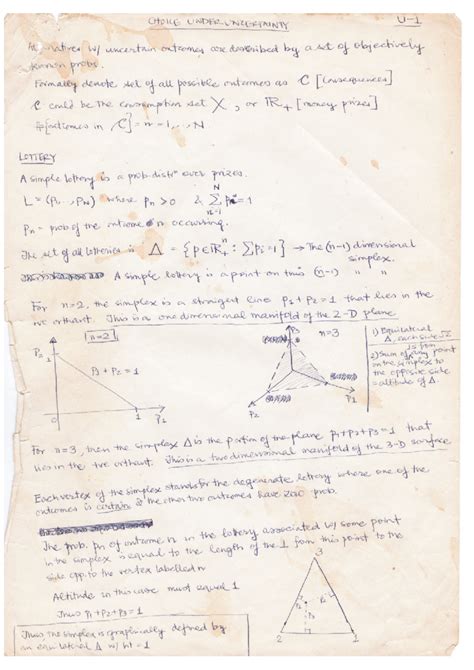 CHOICE UNDER UNCERTAINTY
U-1
Alternatives w/ uncertain outcomes are described by a set of objectively
known probs.
Formally denote set of all possible outcomes as C [consequences]
C could be the consumption set X, or ℝ+ [money prizes]
#[outcomes in C] = n = 1, ..., N
LOTTERY
A simple lottery is a prob. distⁿ over prizes.
L = (P₁, ..., P_N) where Pn > 0 & Σ Pn = 1
N
n=1
Pn = prob of the outcome n occurring.
The set of all lotteries is Δ = {p∈ℝ+ⁿ : Σpi = 1} → The (n-1) dimensional
simplex.
A simple lottery is a point on this (n-1) " "
For n=2, the simplex is a straight line P₁ + P₂ = 1 that lies in the
+ve orthant. This is a one dimensional manifold of the 2-D plane
n=2
P₂
1
P₁ + P₂ = 1
0
1
P₁
P₃
n=3
P₂
P₁
1) Equilateral
Δ, each side √2
2) Sum of ⊥s from any point
on the simplex to
the opposite side
= altitude of Δ.
For n=3, then the simplex Δ is the portion of the plane P₁+P₂+P₃=1 that
lies in the +ve orthant. This is a two dimensional manifold of the 3-D surface
Each vertex of the simplex stands for the degenerate lottery where one of the
outcomes is certain & the other two outcomes have zero prob.
The prob. Pn of outcome n in the lottery associated w/ some point
in the simplex is equal to the length of the ⊥ from this point to the
side opp. to the vertex labelled n
Altitude in this case must equal 1
Thus P₁+P₂+P₃ = 1
Thus the simplex is graphically defined by
an equilateral Δ w/ ht = 1
3
P₃
2
1